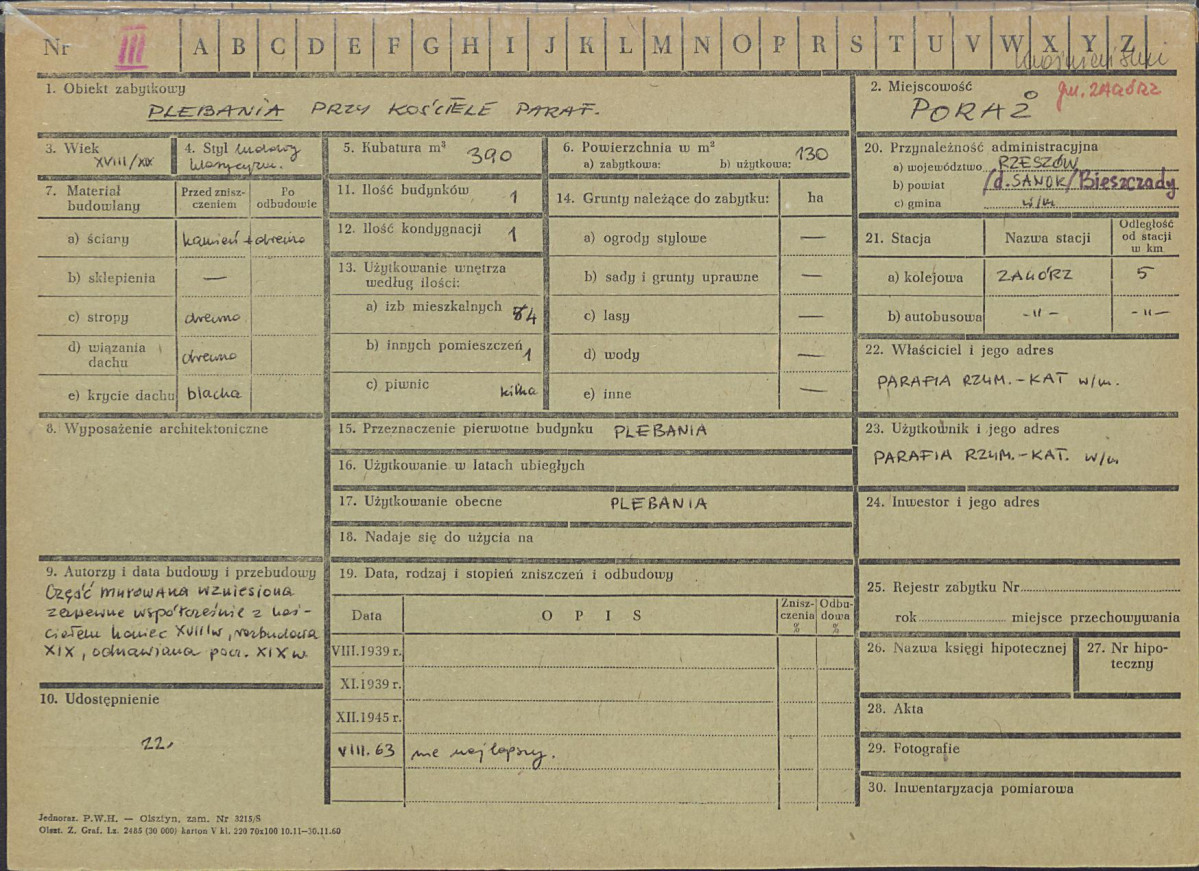 Nr III A B C D E F G H I J K L M N O P R S T U V W X Y Z
1. Obiekt zabytkowy
PLEBANIA PRZY KOŚCIELE PARAF.
2. Miejscowość
gm. ZAGÓRZ
PORAŻ
3. Wiek
XVIII/XIX
4. Styl ludowy
klasycyzm.
5. Kubatura m³ 390
6. Powierzchnia w m²
a) zabytkowa: b) użytkowa: 130
20. Przynależność administracyjna
a) województwo RZESZÓW
b) powiat /d. SANOK/ Bieszczady
c) gmina w/m
7. Materiał budowlany
Przed zniszczeniem
Po odbudowie
a) ściany kamień + drewno
b) sklepienia —
c) stropy drewno
d) wiązania dachu drewno
e) krycie dachu blacha
11. Ilość budynków 1
12. Ilość kondygnacji 1
13. Użytkowanie wnętrza
według ilości:
a) izb mieszkalnych 4
b) innych pomieszczeń 1
c) piwnic kilka
14. Grunty należące do zabytku: ha
a) ogrody stylowe —
b) sady i grunty uprawne —
c) lasy —
d) wody —
e) inne —
21. Stacja
Nazwa stacji
Odległość
od stacji
w km
a) kolejowa ZAGÓRZ 5
b) autobusowa -"- -"-
22. Właściciel i jego adres
PARAFIA RZYM.-KAT w/m.
8. Wyposażenie architektoniczne
15. Przeznaczenie pierwotne budynku PLEBANIA
16. Użytkowanie w latach ubiegłych
17. Użytkowanie obecne PLEBANIA
18. Nadaje się do użycia na
23. Użytkownik i jego adres
PARAFIA RZYM.-KAT. w/m
24. Inwestor i jego adres
9. Autorzy i data budowy i przebudowy
Część murowana wzniesiona
zapewne współcześnie z koś-
ciołem koniec XVIII w, rozbudowa
XIX, odnawiana pocz. XIX w.
10. Udostępnienie
22.
19. Data, rodzaj i stopień zniszczeń i odbudowy
Data
OPIS
Znisz-
czenia
%
Odbu-
dowa
%
VIII.1939 r.
XI.1939 r.
XII.1945 r.
VIII. 63 nie najlepszy.
25. Rejestr zabytku Nr
rok miejsce przechowywania
26. Nazwa księgi hipotecznej
27. Nr hipo-
teczny
28. Akta
29. Fotografie
30. Inwentaryzacja pomiarowa
Jednoraz. P.W.H. — Olsztyn, zam. Nr 3215/S
Olszt. Z. Graf. Lz. 2485 (30 000) karton V kl. 220 70x100 10.11—30.11.60